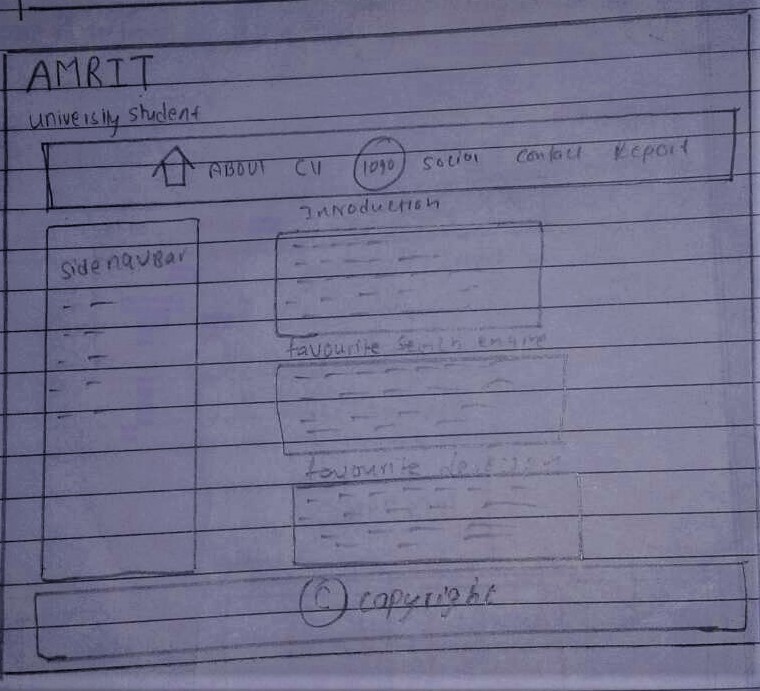 AMRIT
University student
ABOUT CV logo social contact Report
Introduction
sidenavBar
favourite Search engine
favourite
© copyright